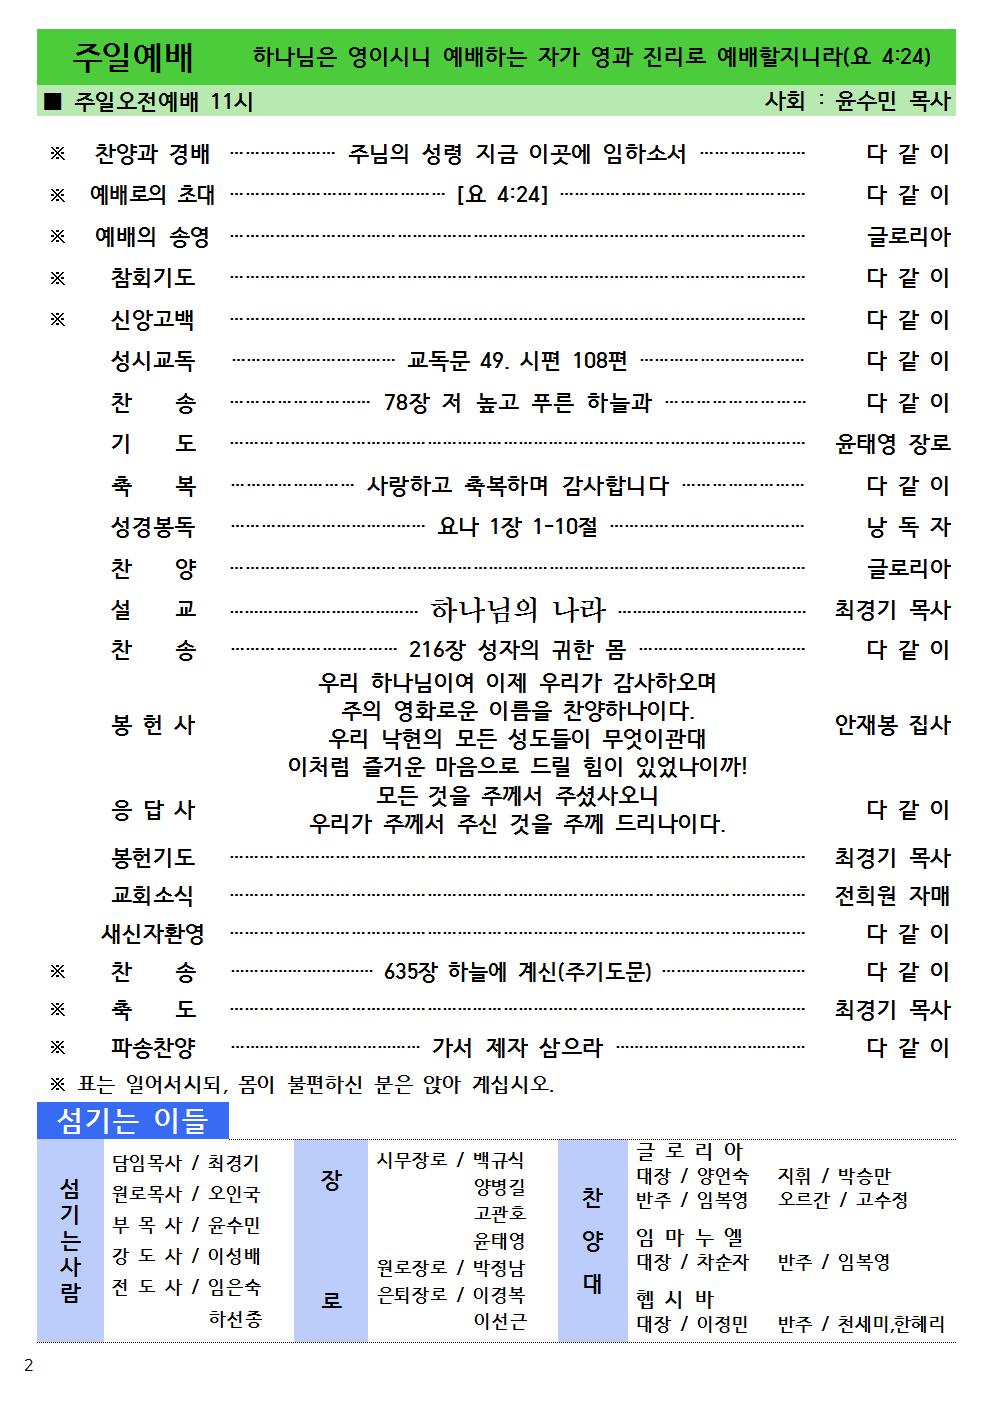 주일예배 하나님은 영이시니 예배하는 자가 영과 진리로 예배할지니라(요 4:24)
■ 주일오전예배 11시 사회 : 윤수민 목사
※ 찬양과 경배 ………………… 주님의 성령 지금 이곳에 임하소서 ………………… 다 같 이
※ 예배로의 초대 …………………………………… [요 4:24] ………………………………………… 다 같 이
※ 예배의 송영 …………………………………………………………………………………………………… 글로리아
※ 참회기도 …………………………………………………………………………………………………… 다 같 이
※ 신앙고백 …………………………………………………………………………………………………… 다 같 이
성시교독 …………………………… 교독문 49. 시편 108편 …………………………… 다 같 이
찬 송 ……………………… 78장 저 높고 푸른 하늘과 ……………………… 다 같 이
기 도 …………………………………………………………………………………………………… 윤태영 장로
축 복 …………………… 사랑하고 축복하며 감사합니다 …………………… 다 같 이
성경봉독 ………………………………… 요나 1장 1-10절 ………………………………… 낭 독 자
찬 양 …………………………………………………………………………………………………… 글로리아
설 교 ………………………………… 하나님의 나라 ………………………………… 최경기 목사
찬 송 …………………………… 216장 성자의 귀한 몸 …………………………… 다 같 이
우리 하나님이여 이제 우리가 감사하오며
주의 영화로운 이름을 찬양하나이다.
봉 헌 사 안재봉 집사
우리 낙현의 모든 성도들이 무엇이관대
이처럼 즐거운 마음으로 드릴 힘이 있었나이까!
모든 것을 주께서 주셨사오니
응 답 사 다 같 이
우리가 주께서 주신 것을 주께 드리나이다.
봉헌기도 …………………………………………………………………………………………………… 최경기 목사
교회소식 …………………………………………………………………………………………………… 전희원 자매
새신자환영 …………………………………………………………………………………………………… 다 같 이
※ 찬 송 ………………………… 635장 하늘에 계신(주기도문) ………………………… 다 같 이
※ 축 도 …………………………………………………………………………………………………… 최경기 목사
※ 파송찬양 ………………………………… 가서 제자 삼으라 ………………………………… 다 같 이
※ 표는 일어서시되, 몸이 불편하신 분은 앉아 계십시오.
섬기는 이들
섬기는사람
담임목사 / 최경기
원로목사 / 오인국
부 목 사 / 윤수민
강 도 사 / 이성배
전 도 사 / 임은숙
하선종
장 로
시무장로 / 백규식
양병길
고관호
윤태영
원로장로 / 박정남
은퇴장로 / 이경복
이선근
찬 양 대
글 로 리 아
대장 / 양언숙 지휘 / 박승만
반주 / 임복영 오르간 / 고수정
임 마 누 엘
대장 / 차순자 반주 / 임복영
헵 시 바
대장 / 이정민 반주 / 천세미,한혜리
2